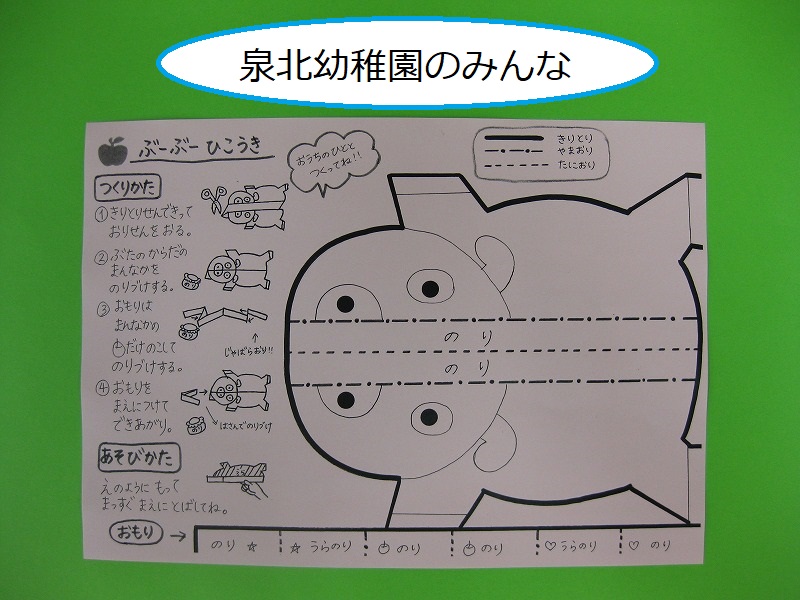 泉北幼稚園のみんな
ぶーぶー ひこうき
おうちのひとと
つくってね!!
きりとり
やまおり
たにおり
つくりかた
①きりとりせんできって
おりせんをおる。
②ぶたのからだの
まんなかを
のりづけする。
のり
③おもりは
まんなかの
だけのこして
のりづけする。
のり
じゃばらおり!!
④おもりを
まえにつけて
できあがり。
のり
はさんでのりづけ
あそびかた
えのように もって
まっすぐ まえに とばしてね。
のり
のり
おもり →
のり ☆
☆ うらのり
のり
のり
♡ うらのり
♡ のり